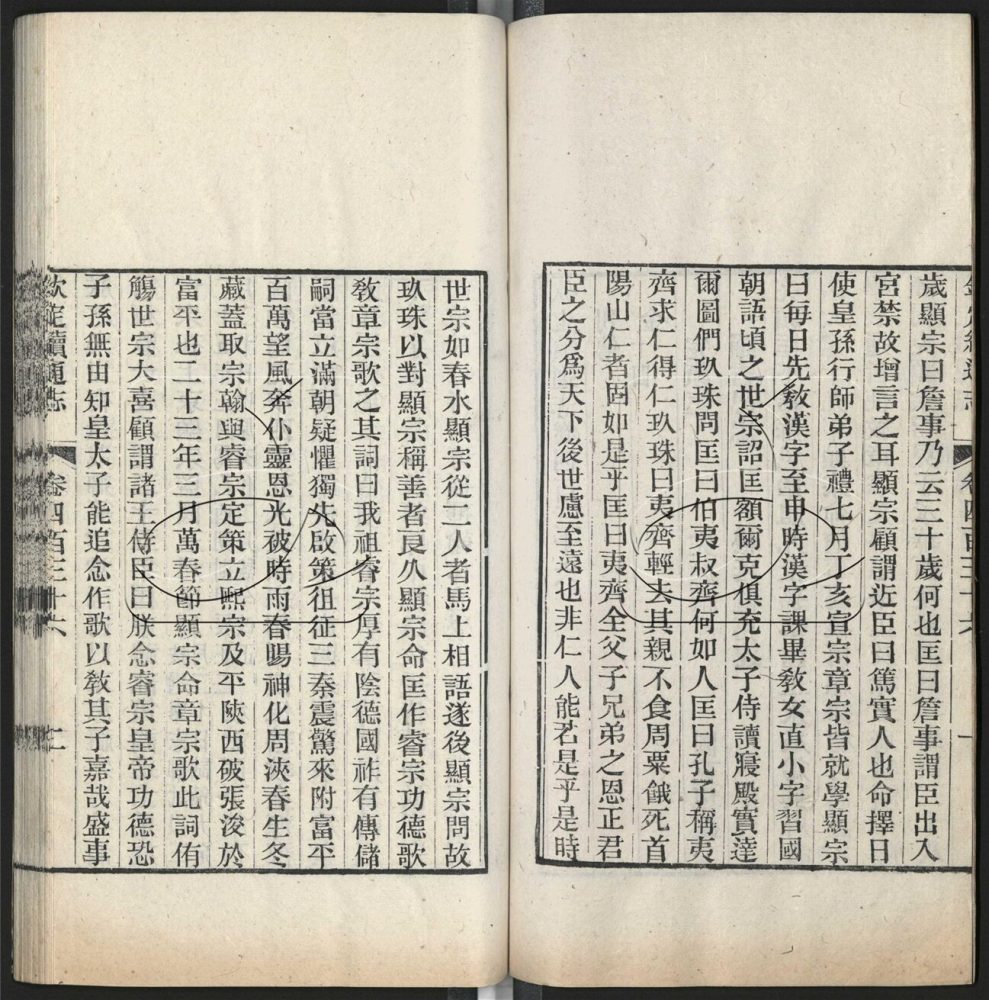 歲顯宗曰詹事乃云三十歲何也匡曰詹事謂臣出入
宮禁故增言之耳顯宗顧謂近臣曰篤實人也命擇日
使皇孫行師弟子禮七月丁亥宣宗章宗皆就學顯宗
曰每日先敎漢字至申時漢字課畢敎女直小字習國
朝語頃之世宗詔匡額爾克俱充太子侍讀寢殿實達
爾圖們玖珠問匡曰伯夷叔齊何如人匡曰孔子稱夷
齊求仁得仁玖珠曰夷齊輕去其親不食周粟餓死首
陽山仁者固如是乎匡曰夷齊全父子兄弟之恩正君
臣之分爲天下後世慮至遠也非仁人能若是乎是時
世宗如春水顯宗從二人者馬上相語遂後顯宗問故
玖珠以對顯宗稱善者良久顯宗命匡作睿宗功德歌
敎章宗歌之其詞曰我祖睿宗厚有陰德國祚有傳儲
嗣當立滿朝疑懼獨先啟策徂征三秦震驚來附富平
百萬望風奔仆靈恩光破時雨春暘神化周浹春生冬
藏蓋取宗翰與睿宗定策立熙宗及平陝西破張浚於
富平也二十三年三月萬春節顯宗命章宗歌此詞侑
觴世宗大喜顧謂諸王侍臣曰朕念睿宗皇帝功德恐
子孫無由知皇太子能追念作歌以敎其子嘉哉盛事
欽定續通志
卷四百三十六
二